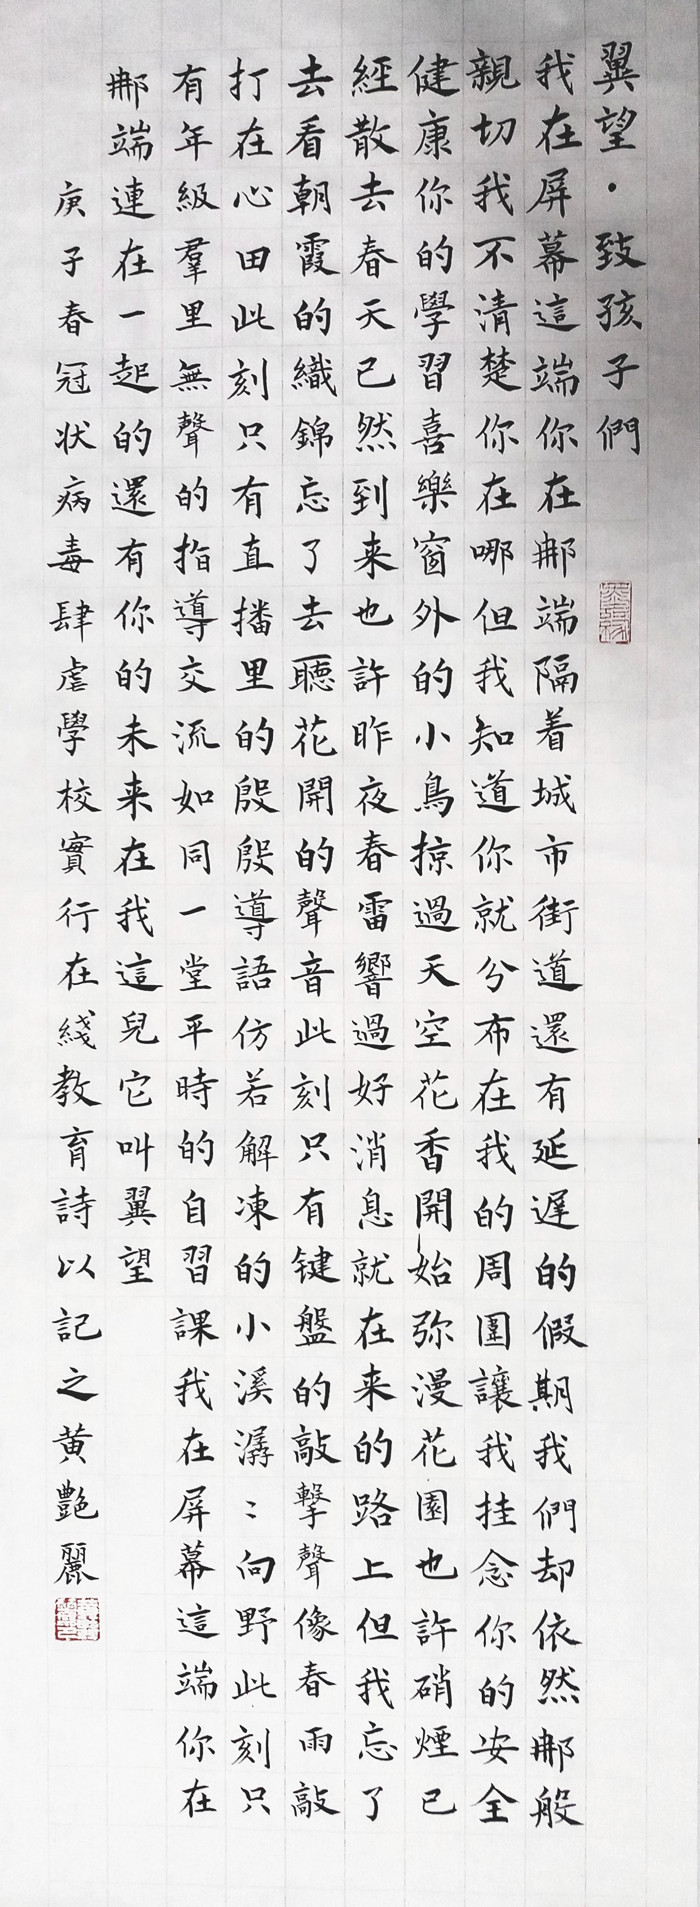 翼望·致孩子們
我在屏幕這端你在那端隔着城市街道還有延遲的假期我們却依然那般
親切我不清楚你在哪但我知道你就分布在我的周圍讓我挂念你的安全
健康你的學習喜樂窗外的小鳥掠過天空花香開始弥漫花園也許硝煙已
經散去春天已然到来也許昨夜春雷響過好消息就在来的路上但我忘了
去看朝霞的織錦忘了去聽花開的聲音此刻只有键盤的敲擊聲像春雨敲
打在心田此刻只有直播里的殷殷導語仿若解凍的小溪潺〻向野此刻只
有年級羣里無聲的指導交流如同一堂平時的自習課我在屏幕這端你在
那端連在一起的還有你的未来在我這兒它叫翼望
庚子春冠状病毒肆虐學校實行在綫教育詩以記之黄艷麗